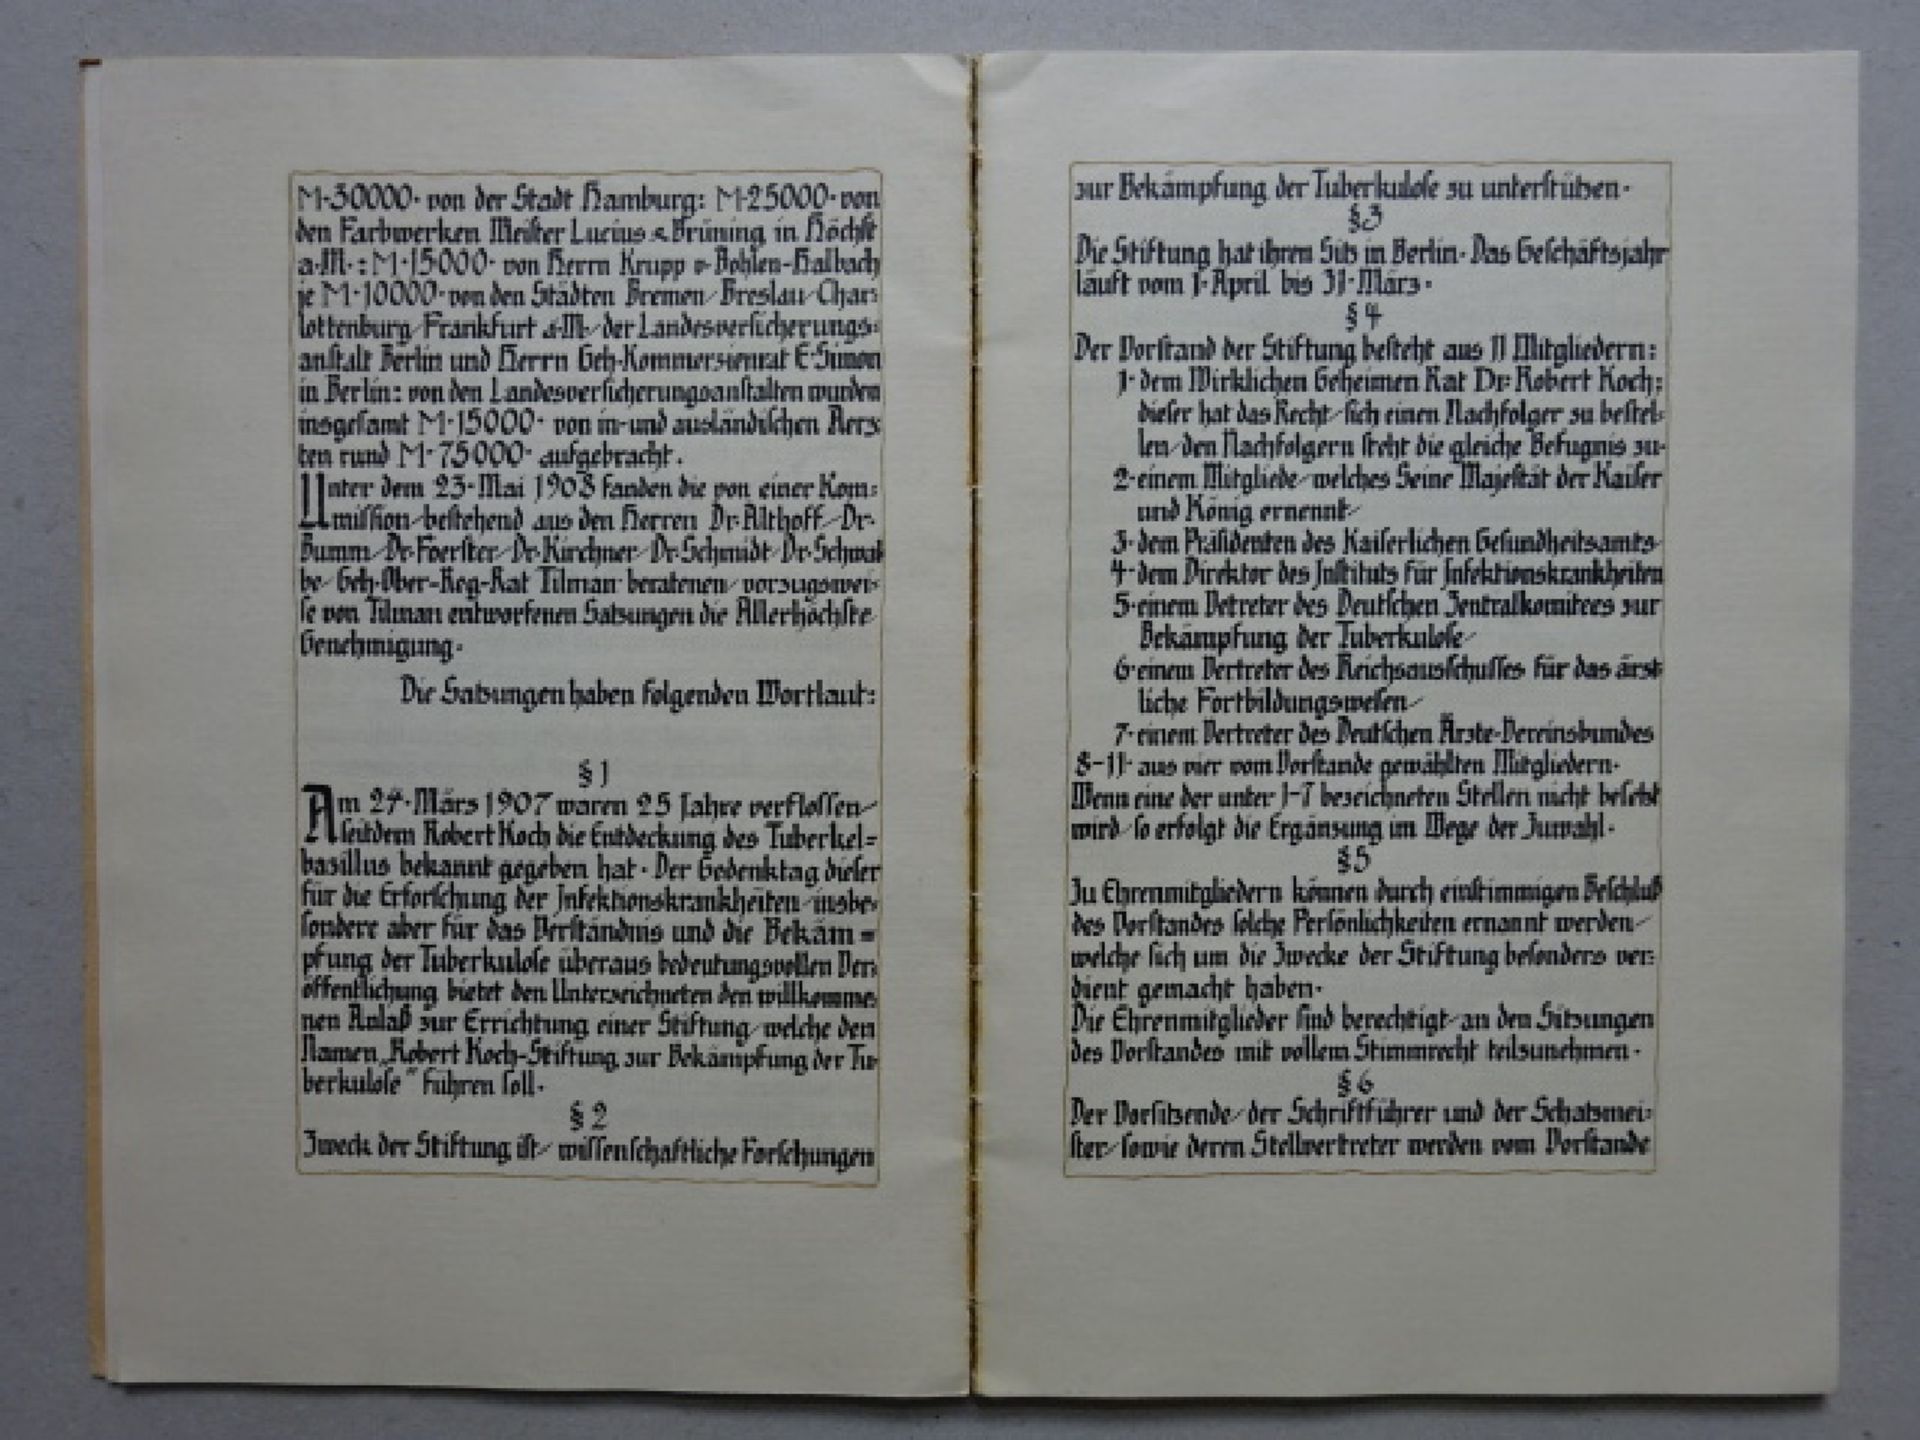 M·30000· von der Stadt Hamburg: M·25000· von
den Farbwerken Meister Lucius & Brüning in Höchst
a·M·: M·15000· von Herrn Krupp v·Bohlen-Halbach
je M·10000· von den Städten Bremen/Breslau/Char=
lottenburg/Frankfurt a·M·/der Landesversicherungs=
anstalt Berlin und Herrn Geh·Kommerzienrat E·Simon
in Berlin: von den Landesversicherungsanstalten wurden
insgesamt M·15000· von in-und ausländischen Aerz
ten rund M·75000· aufgebracht.
Unter dem 23·Mai 1908 fanden die von einer Kom=
mission/bestehend aus den Herren Dr·Althoff/Dr·
Bumm/Dr·Foerster/Dr·Kirchner/Dr·Schmidt/Dr·Schwal
be/Geh·Ober-Reg-Rat Tilman beratenen/vorzugswei=
se von Tilman entworfenen Satzungen die Allerhöchste
Genehmigung·
Die Satzungen haben folgenden Wortlaut:
§1
Am 24·März 1907 waren 25 Jahre verflossen/
seitdem Robert Koch die Entdeckung des Tuberkel=
basillus bekannt gegeben hat· Der Gedenktag dieser
für die Erforschung der Infektionskrankheiten/insbe=
sondere aber für das Verständnis und die Bekäm=
pfung der Tuberkulose überaus bedeutungsvollen Ver=
öffentlichung bietet den Unterzeichneten den willkomme=
nen Anlaß zur Errichtung einer Stiftung/welche den
Namen „Robert Koch-Stiftung zur Bekämpfung der Tu=
berkulose“ führen soll·
§2
Zweck der Stiftung ist/ wissenschaftliche Forschungen
zur Bekämpfung der Tuberkulose zu unterstützen·
§3
Die Stiftung hat ihren Sitz in Berlin· Das Geschäftsjahr
läuft vom 1·April bis 31·März·
§4
Der Vorstand der Stiftung besteht aus 11 Mitgliedern:
1· dem Wirklichen Geheimen Rat Dr· Robert Koch;
dieser hat das Recht/sich einen Nachfolger zu bestel=
len/den Nachfolgern steht die gleiche Befugnis zu·
2·einem Mitgliede/welches Seine Majestät der Kaiser
und König ernennt/
3·dem Präsidenten des Kaiserlichen Gesundheitsamts
4·dem Direktor des Instituts für Infektionskrankheiten
5·einem Vetreter des Deutschen Zentralkomitees zur
Bekämpfung der Tuberkulose/
6·einem Vertreter des Reichsausschusses für das ärzt
liche Fortbildungswesen/
7·einem Vertreter des Deutschen Ärzte-Vereinsbundes
8-11· aus vier vom Vorstande gewählten Mitgliedern·
Wenn eine der unter 1-7 bezeichneten Stellen nicht besetzt
wird/so erfolgt die Ergänzung im Wege der Zuwahl·
§5
Zu Ehrenmitgliedern können durch einstimmigen Beschluß
des Vorstandes solche Persönlichkeiten ernannt werden/
welche sich um die Zwecke der Stiftung besonders ver=
dient gemacht haben·
Die Ehrenmitglieder sind berechtigt/an den Sitzungen
des Vorstandes mit vollem Stimmrecht teilzunehmen·
§6
Der Vorsitzende/der Schriftführer und der Schatzmei=
ster/sowie deren Stellvertreter werden vom Vorstande